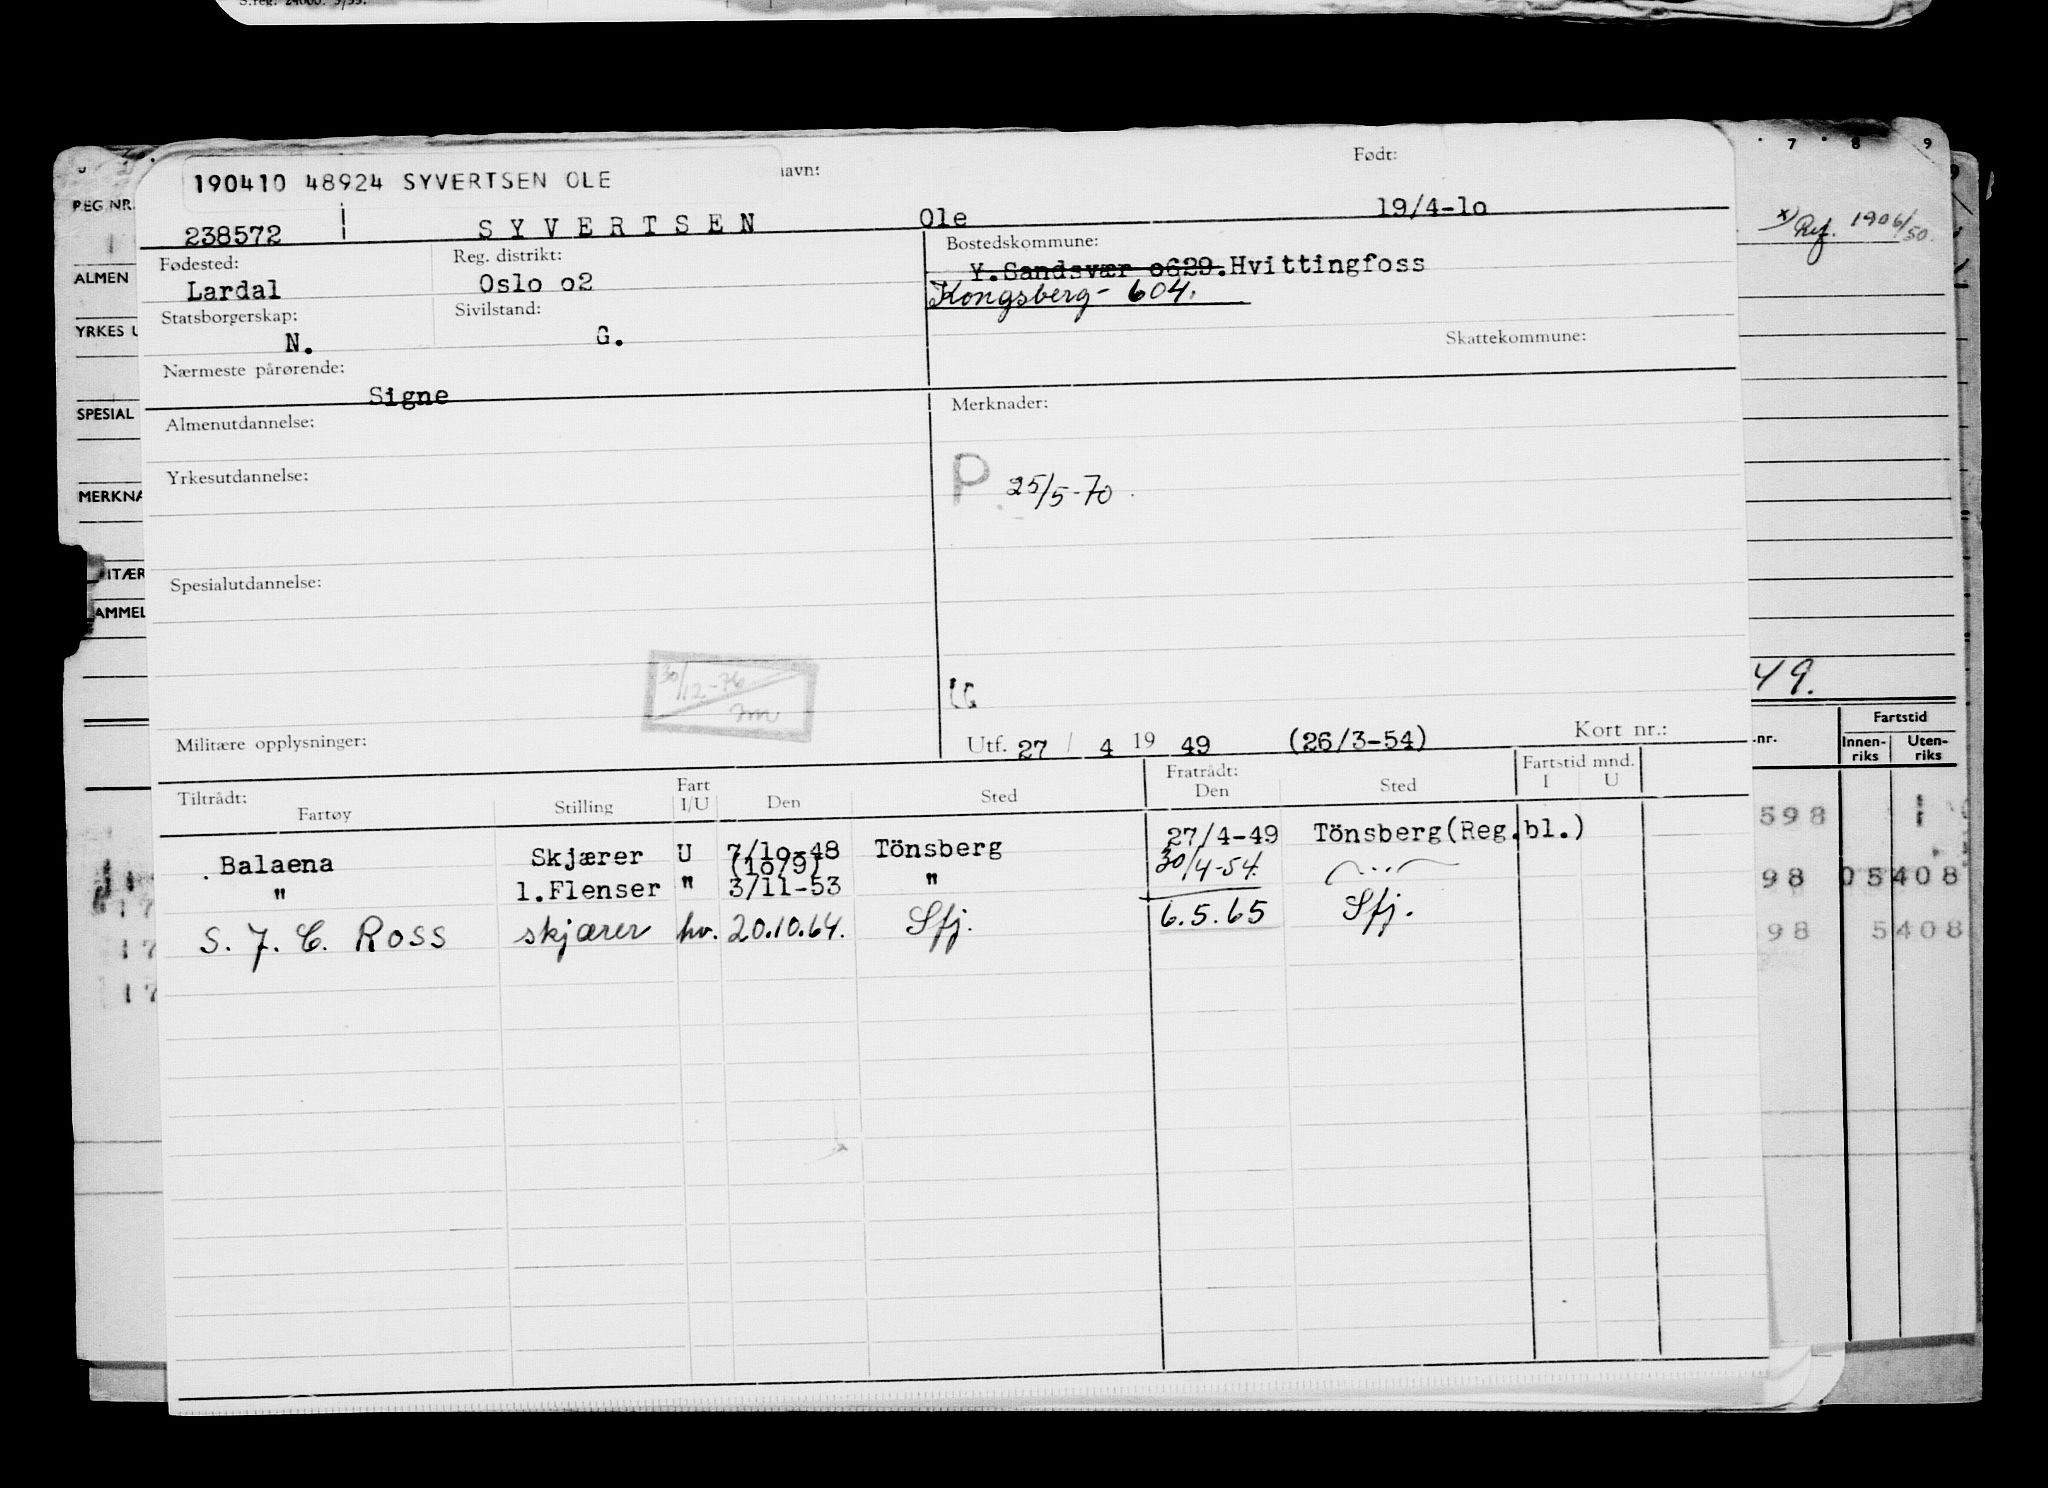 S.reg. 24000. 3/55.
190410 48924 SYVERTSEN OLE
Født:
238572 SYVERTSEN Ole 19/4-1o
Fødested: Lardal
Reg. distrikt: Oslo o2
Bostedskommune: Y.Sandsvær o629.Hvittingfoss
Kongsberg - 604.
Statsborgerskap: N.
Sivilstand: G.
Skattekommune:
Nærmeste pårørende: Signe
Almenutdannelse:
Merknader:
Yrkesutdannelse:
P 25/5-70
Spesialutdannelse:
30/12-76
Militære opplysninger:
Utf. 27 / 4 19 49 (26/3-54) Kort nr.:
Tiltrådt: Fartøy Stilling Fart I/U Den Sted Fratrådt: Den Sted Fartstid mnd. I U
Balaena Skjærer U 7/1o-48 Tönsberg 27/4-49 Tönsberg(Reg.bl.)
(1o/9)
" 1.Flenser " 3/11-53 " 30/4-54.
S. J. C. Ross skjærer hv. 20.10.64. Sfj. 6.5.65 Sfj.
REG.NR.
ALMEN
YRKES U
SPESIAL
MERKNA
ITÆR
AMMEL
7 8 9
x) Ref. 1906/50.
49.
nr. Fartstid
Innen-riks Uten-riks
598 1
98 05408
98 5408
17
17
17